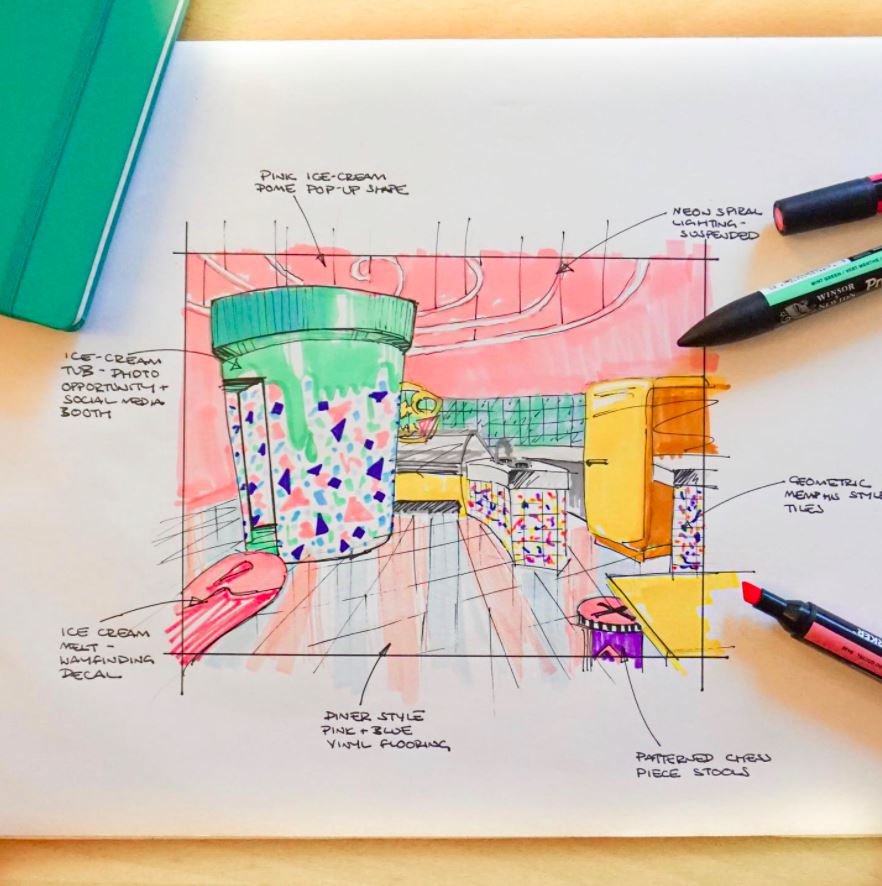 PINK ICE-CREAM
DOME POP-UP SHAPE
NEON SPIRAL
LIGHTING -
SUSPENDED
ICE-CREAM
TUB - PHOTO
OPPORTUNITY +
SOCIAL MEDIA
BOOTH
GEOMETRIC
MEMPHIS STYLE
TILES
ICE CREAM
MELT -
WAYFINDING
DECAL
DINER STYLE
PINK + BLUE
VINYL FLOORING
PATTERNED CHESS
PIECE STOOLS
MINT GREEN / VERT MENTHE
WINSOR
& NEWTON
Pr
RKER